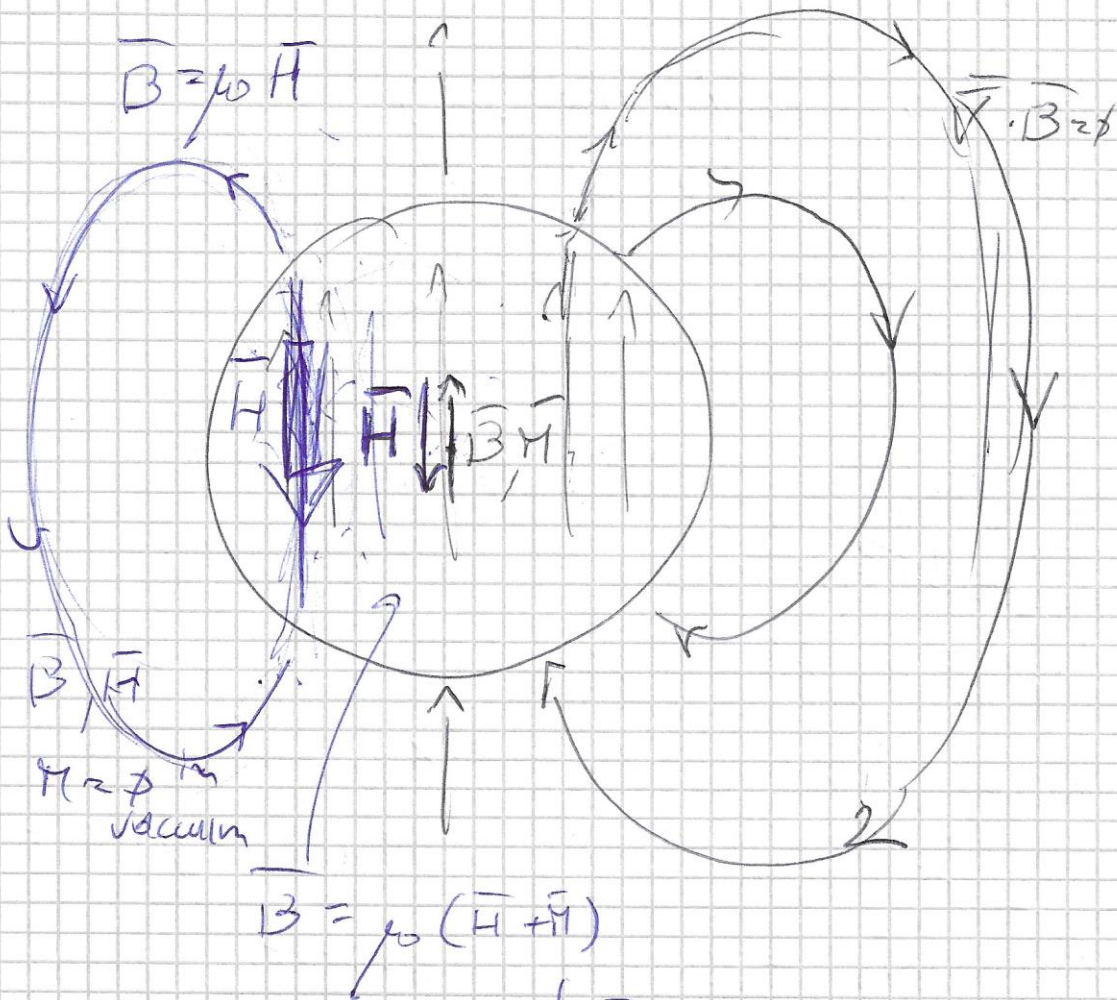 B̅ = μ₀ H̅
∇̅ · B̅ = ϕ
H̅
H̅
B̅, M̅
B̅, H̅
M = ϕ in
vacuum
B̅ = μ₀ (H̅ + M̅)